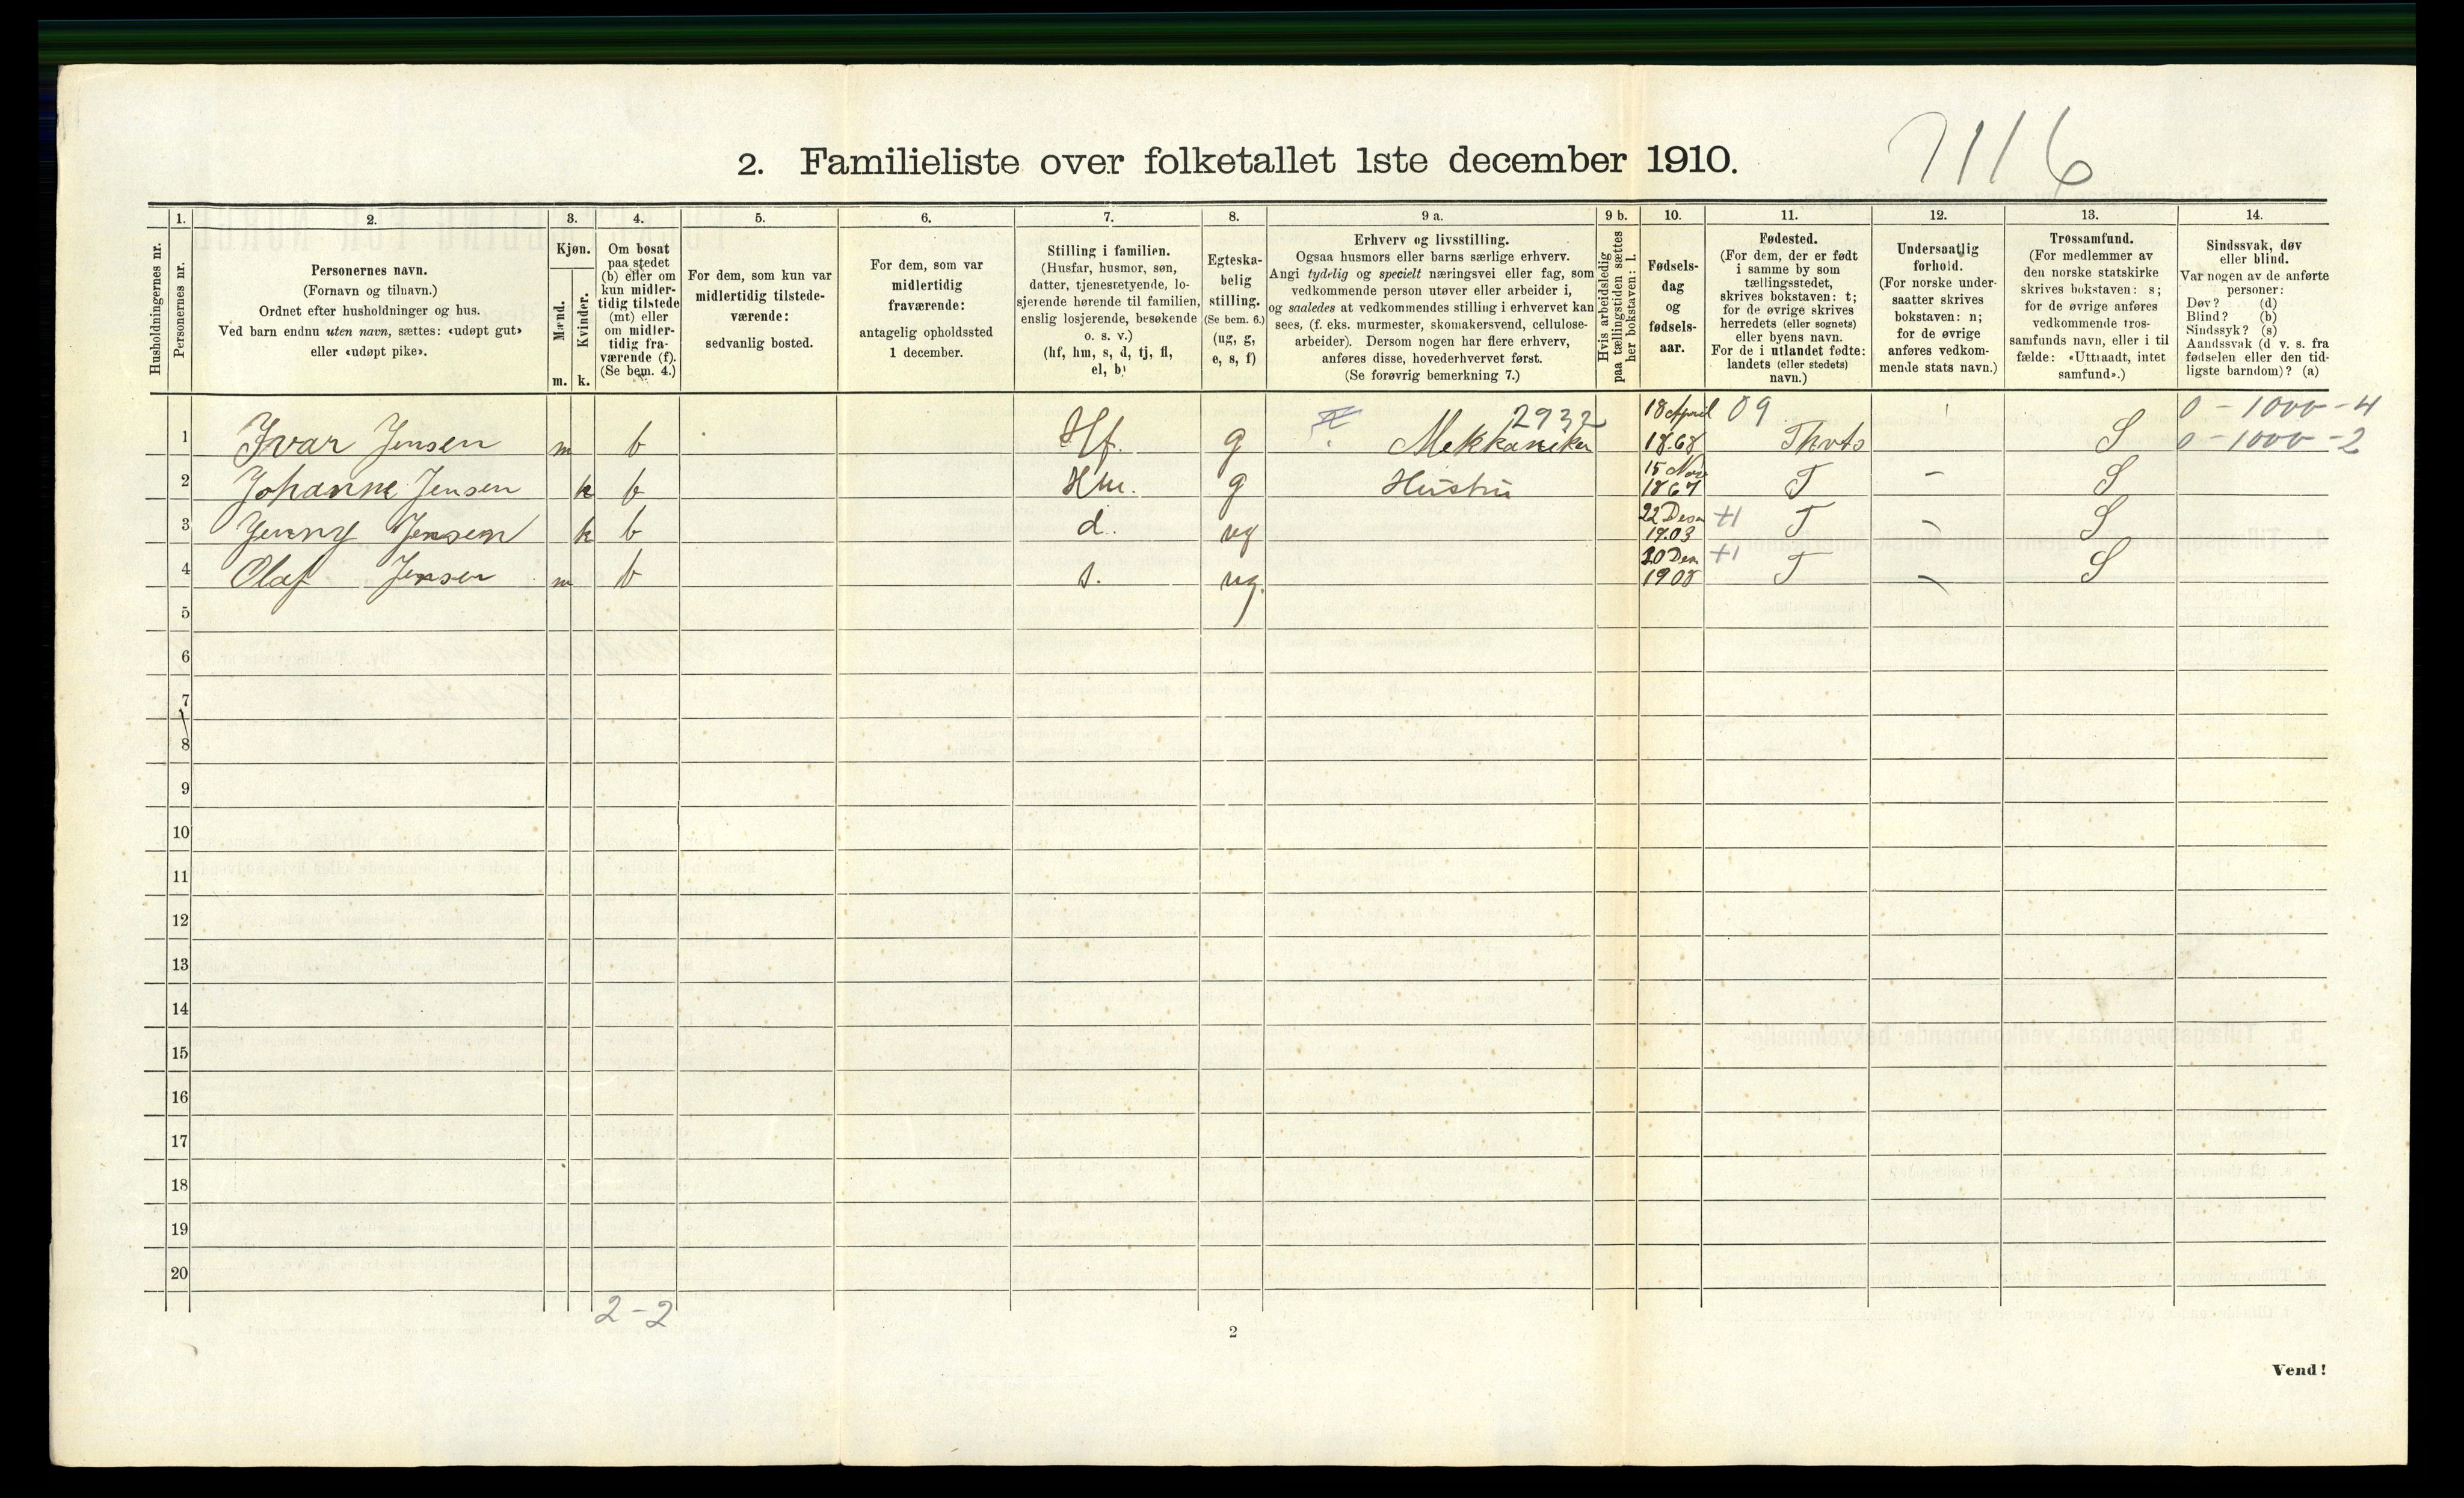 7116
2. Familieliste over folketallet 1ste december 1910.
Husholdningernes nr.
1.
Personernes nr.
2.
Personernes navn.
(Fornavn og tilnavn.)
Ordnet efter husholdninger og hus.
Ved barn endnu uten navn, sættes: «udøpt gut»
eller «udøpt pike».
3.
Kjøn.
Mænd.
Kvinder.
m. k.
4.
Om bosat
paa stedet
(b) eller om
kun midler-
tidig tilstede
(mt) eller
om midler-
tidig fra-
værende (f).
(Se bem. 4.)
5.
For dem, som kun var
midlertidig tilstede-
værende:
sedvanlig bosted.
6.
For dem, som var
midlertidig
fraværende:
antagelig opholdssted
1 december.
7.
Stilling i familien.
(Husfar, husmor, søn,
datter, tjenestetyende, lo-
sjerende hørende til familien,
enslig losjerende, besøkende
o. s. v.)
(hf, hm, s, d, tj, fl,
el, b)
8.
Egteska-
belig
stilling.
(Se bem. 6.)
(ug, g,
e, s, f)
9 a.
Erhverv og livsstilling.
Ogsaa husmors eller barns særlige erhverv.
Angi tydelig og specielt næringsvei eller fag, som
vedkommende person utøver eller arbeider i,
og saaledes at vedkommendes stilling i erhvervet kan
sees, (f. eks. murmester, skomakersvend, cellulose-
arbeider). Dersom nogen har flere erhverv,
anføres disse, hovederhvervet først.
(Se forøvrig bemerkning 7.)
9 b.
Hvis arbeidsledig
paa tællingstiden sættes
her bokstaven: l.
10.
Fødsels-
dag
og
fødsels-
aar.
11.
Fødested.
(For dem, der er født
i samme by som
tællingsstedet,
skrives bokstaven: t;
for de øvrige skrives
herredets (eller sognets)
eller byens navn.
For de i utlandet fødte:
landets (eller stedets)
navn.)
12.
Undersaatlig
forhold.
(For norske under-
saatter skrives
bokstaven: n;
for de øvrige
anføres vedkom-
mende stats navn.)
13.
Trossamfund.
(For medlemmer av
den norske statskirke
skrives bokstaven: s;
for de øvrige anføres
vedkommende tros-
samfunds navn, eller i til
fælde: «Uttraadt, intet
samfund».)
14.
Sindssvak, døv
eller blind.
Var nogen av de anførte
personer:
Døv? (d)
Blind? (b)
Sindssyk? (s)
Aandssvak (d v. s. fra
fødselen eller den tid-
ligste barndom)? (a)
2932 18 April 09 0 - 1000 - 4
1 Ivar Jensen m b Hf. g Mekkaneker 1868 S 0 - 1000 - 2
2 Johanne Jensen k b Hm. g Hustru 15 Nov 1867 T - S
3 Jenny Jensen k b d. ug 22 Desm 1903 +1 T - S
4 Olaf Jensen m b s. ug. 20 Dem 1908 +1 T - S
5
6
7
8
9
10
11
12
13
14
15
16
17
18
19
20
2 - 2
2
Vend!